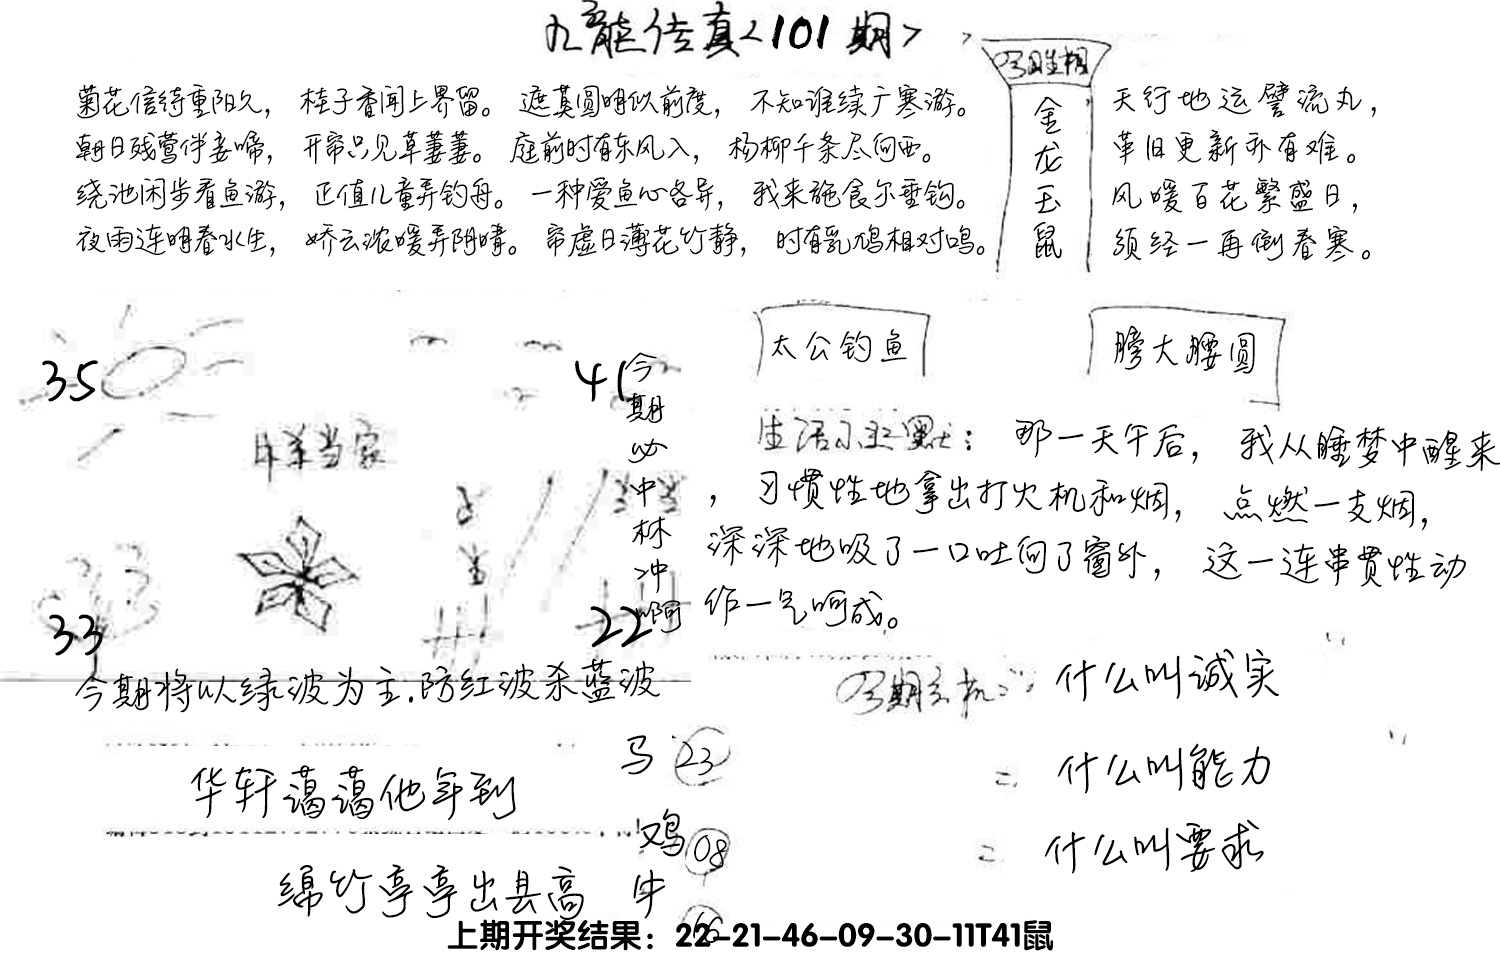 九龙传真<101期>
今期生肖相
金龙玉鼠
菊花信待重阳久，桂子香闻上界留。遮莫圆明似前度，不知谁续广寒游。
朝日残莺伴妾啼，开帘只见草萋萋。庭前时有东风入，杨柳千条尽向西。
绕池闲步看鱼游，正值儿童弄钓舟。一种爱鱼心各异，我来施食尔垂钩。
夜雨连明春水生，娇云浓暖弄阴晴。帘虚日薄花竹静，时有乳鸠相对鸣。
天行地运譬流丸，
革旧更新亦有难。
风暖百花繁盛日，
须经一再倒春寒。
35
41
今期必中林冲啊
羊当家
33
22
今期将以绿波为主.防红波杀蓝波
太公钓鱼
膀大腰圆
生活幽默：那一天午后，我从睡梦中醒来
，习惯性地拿出打火机和烟，点燃一支烟，
深深地吸了一口吐向了窗外，这一连串贯性动
作一气呵成。
今期玄机：什么叫诚实
什么叫能力
什么叫要求
华轩蔼蔼他年到
绵竹亭亭出县高
马 23
鸡 08
牛
上期开奖结果：22-21-46-09-30-11T41鼠